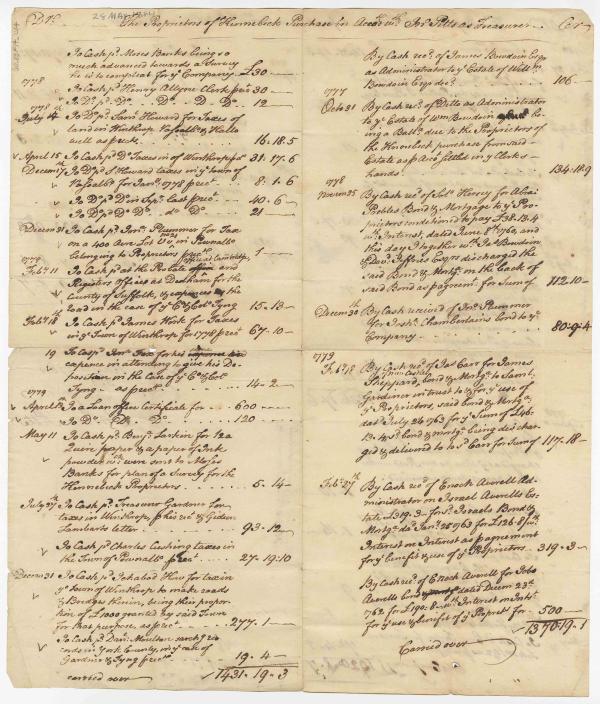 Dr. The Proprietors of Kennebeck Purchase in Acco. wth. Jno. Pitts as Treasurer Cr.
28 MAY 1944
To Cash pd. Moses Banks being so
much advanced towards a Survey
he is to compleat for ye Company £30
1778
To Cash pd. Henry Alline Clerk pr. 30
To Do. pd. Do. Do. D. Do. 12
1778
July 14 To Do. pd. Saml. Howard for Taxes of
land in Winthrop Vassalbo. & Hallo
well as pr. rect. 16.18.5
April 15 To Cash pd. Do. Taxes in of Winthrop 31.17.6
Decem 17 To Do. pd. S. Howard taxes in ye town of
Vassalbo. for Janr. 1778 pr. rect. 8.1.6
To Do. pd. Do. in Sepr. last pr. rect. 40.6
To Do. pd. Do. Do. do. Do. 21
Decem 31 To Cash pd. Jno. Plummer for Tax
on a 400 Acre Lot in Pownalbo.
belonging to Proprietors pr. rect. 1
1779
Feby. 11 To Cash pd. at the Probate office and
Registers Offices at Dedham for the
County of Suffolk, & expences
load in the case of ye Co. & Col. Tyng 15.13
Feby. 18 To Cash pd. James Work for Taxes
in ye Town of Winthrop for 1778 pr. rect. 67.10
19 To Cash pd. Jno. Fox for his
expence in attending to give his De-
position in the Case of ye Co. & Col.
Tyng as pr. rect. 14.2
1779
April To a Loan office Certificate for 600
To Do. Do. Do. 120
May 11 To Cash pd. Benj. Larkin for 12a
Quire paper & a paper of Ink
powder wch. were sent to Moses
Banks for plan of a Survey for the
Kennebeck Proprietors 5.14
July 27th To Cash pd. Treasurer Gardner for
taxes in Winthrop, p his rect. & Gideon
Lambarts letter 93.12
To Cash pd. Charles Cushing taxes in
the Town of Pownalbo. pr. rect. 27.19.10
Decem 31 To Cash pd. Ichabod How for tax in
ye town of Winthrop to make roads
& Bridges therein, being their propor-
tion of £1000 granted by said Town
for that purpose, as pr. rect. 277.1
To Cash pd. Danl. Moulton search ye re-
cords in York County, in ye case of
Gardner & Tyng pr. rect. 19.4
carried over 1431.19.3
By Cash recd. of James Bowdoin Esqr.
as Administrator to ye Estate of Willm.
Bowdoin Esqr. decd. 106
1777
Octo 31 By Cash recd. of Ditto as Administrator
to ye Estate of Wm. Bowdoin be-
ing a Balla. due to the Proprietors of
the Kennebeck purchase from said
Estate as p Acco. settled in ye Clerk's
hands 134.18.9
1778
Novem 25 By Cash recd. of Jos. Henry for Abra.
Pebbles Bond & Mortgage to ye Pro-
prietors conditioned to pay £38.13.4
wth. Interest, dated June 8th 1760, and
this day I together wth. Jas. Bowdoin
& Davd. Jeffries Esqrs. discharged the
said Bond & Mortg. on the back of
said Bond as payment for Sum of 112.10
Decem 30th By Cash received of Jno. Plummer
for Josh. Chamberlains bond to ye
Company 80.9.4
1779
Feby. 18 By Cash recd. of Jos. Carr for James
Sheppard, bond & Mortg. to Saml.
Gardiner in trust to & for ye use of
ye Proprietors, said bond & Mortg.
datd. July 26 1763 for ye Sum of £46.
13.4 sd. bond & mortg. being dischar-
ged & delivered to sd. Carr for Sum of 117.18
Feby. 27th By Cash recd. of Enoch Averell Ad-
ministrator on Israel Averells Es-
tate £319.3 for sd. Israels Bond &
Mortg. dd. Janr. 28 1763 for £126.8 wth.
Interest on Interest as payment
for ye benefit & use of ye Proprietors 319.3
By Cash recd. of Enoch Averell for Jobe
Averell bond dated Decem 23d
1762 for £190.8 wth. Interest on Intst.
for ye use & benefit of ye Propriet. for 500
1370.19.1
Carried over